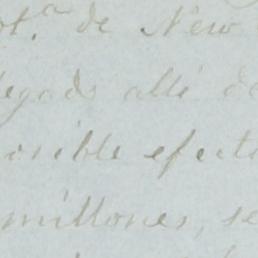 pt.ª de New
legado allí de
posible efecto
millones, se